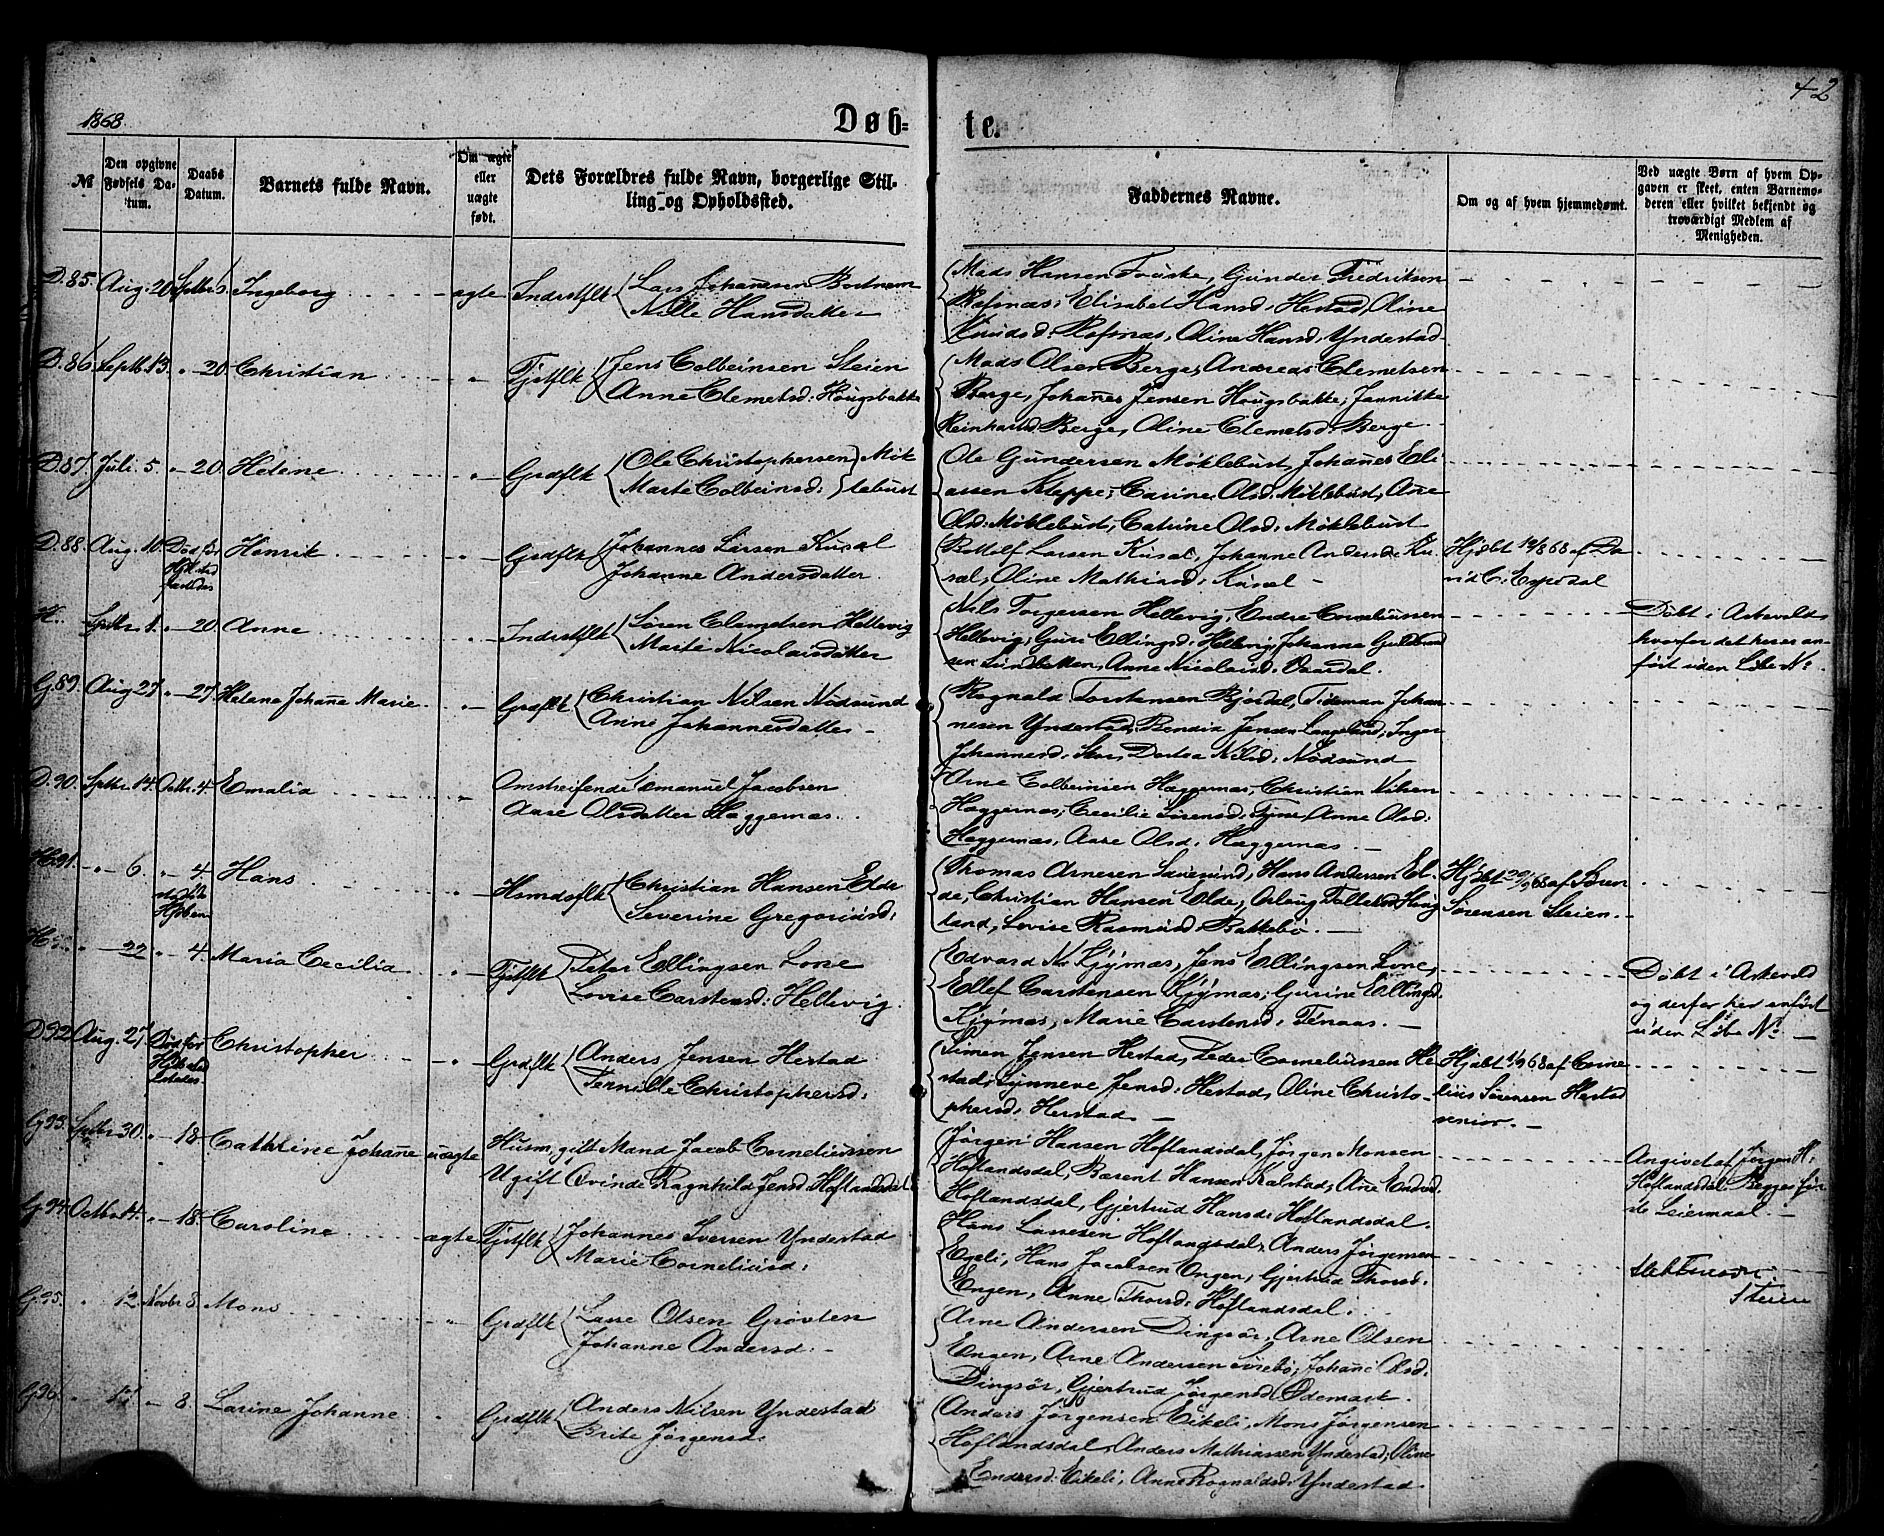 1868.
Døb=
te.
42
№
Den opgivne Fødsels Datum.
Daabs Datum.
Barnets fulde Navn.
Om ægte eller uægte født.
Dets Forældres fulde Navn, borgerlige Stilling og Opholdssted.
Faddernes Navne.
Om og af hvem hjemmedøbt.
Ved uægte Børn af hvem Opgaven er skeet, enten Barnemoderen eller hvilket bekjendt og troværdigt Medlem af Menigheden.
D.85. Aug. 20 Septbr 6. Ingeborg ægte Indrstflk Lars Johannesen Bortnem
Nille Hansdatter
Mads Hansen Fouske, Gunder Fredriksen
Refsnæs, Elisabet Hansd. Hestad, Oline
Knudsd. Refsnæs, Oline Hansd. Yndestad
D.86. Septb. 13. " 20 Christian " Tjstflk Jens Colbeinsen Steien
Anne Clemetsd: Hougsbakke
Mads Olsen Berge, Andreas Clemetsen
Berge, Johanes Jensen Hougsbakke, Jannikke
Reinhartsd. Berge, Oline Clemetsd. Berge
D.87. Juli 5. " 20 Helene " Grdflk Ole Christophersen Møk
Marte Colbeinsd: lebust
Ole Gundersen Møklebust, Johanes Eli
assen Kleppe, Carine Olsd. Møklebust, Ane
Olsd: Møklebust, Catrine Olsd: Møklebust
D.88. Aug. 10. Død før Henrik " Grdflk Johannes Larsen Kusal
Johanne Andersdatter
Bottolf Larsen Kusal, Johanne Andersd: Ku
sal, Oline Mathiasd: Kusal
Hjdbt 12/8 68 af Da
vid C. Espedal
H. Septbr 1. " 20 Anne " Indrstflk Søren Clemetsen Hellevig
Marte Nicolaisdatter
Nils Torgersen Hellevig, Endre Corneliussen
Hellevig, Guri Ellingsd. Hellevig, Johanna
Anne Nicolaisd.
Døbt i Askevold
hvorfor det heres an-
ført uden Løbe №.
G.89. Aug 27 " 27. Helene Johane Marie " Grdflk Christian Nilsen Nødsund
Anne Johannesdatter
Rognald Torstensen Bjordal, Tideman Johan
nesen Yndestad, Bendix Jensen Langelund, Inger
Johannesd. Skor, Dortea Nilsd. Nødsund
D.90. Septbr 14. Octbr. 4. Emalia " Omstreifende Emanuel Jacobsen
Aase Olsdatter Hæggernæs
Arne Colbeinsen Hæggernæs, Christian Nilsen
Hæggernæs, Cecilie Sørensd. Anne Olsd:
Hæggernæs, Aase Olsd. Hæggernæs
H.91. " 6. " 4 Hans " Hsmdsflk Christian Hansen Elde
Severine Gregoriusd:
Thomas Arnesen Hans Andersen El-
de, Christian Hansen Elde, Aslaug Houg
land, Lovise Rasmusd. Bakkebø.
Hjdbt 20/9 68 af Søren
Sørensen Steien.
H. " 22 " 4. Maria Cecilia " Tjstflk Peter Ellingsen Lone
Lovise Carstensd: Hellevig.
Edvard N. Gjymæs, Jens Ellingsen Lone,
Ellef Carstensen Gjymæs, Gurine Ellingsd.
Gjymæs, Marie Carstensd: Tenaas.
Døbt i Askevold
og derfor her anført
uden Løbe №
D.92 Aug. 27 Død før Christopher " Grdflk Anders Jensen Hestad
Pernille Christophersd:
Simen Jensen Hestad, Peder Corneliussen He
stad, Synneve Jensd: Hestad, Oline Christo-
phersd: Hestad
Hjdbt 1/9 68 af Corne
lius Sørensen Hestad
senior.
G.93. Septbr 30. " 18 Cathrine Johane uægte Husm, gift Mand Jacob Corneliussen
Ugift Qvinde Ragnhild Jensd. Hoflandsdal
Jørgen Hansen Hoflandsdal, Jørgen Monsen
Hoflandsdal, Baarent Hansen Kalstad, Ane Endresd.
Hoflandsdal, Gjertrud Hansd: Hoflandsdal.
Angivet af Jørgen H.
Hoflandsdal. Begges før-
ste Leiermaal.
G.94. Octbr 4. " 18. Caroline ægte Tjstflk Johannes Iversen Yndestad
Marie Corneliusd:
Hans Lassesen Hoflandsdal, Anders Jørgensen
Egeli, Hans Jacobsen Engen, Gjertrud Thorsd:
Engen, Anne Thorsd: Hoflandsdal.
Steien
G.95. " 12 Novbr 8. Mons " Grdflk Lasse Olsen Grøvlen
Johanne Andersd.
Arne Andersen Dingsør, Arne Olsen
Engen, Arne Andersen Johane Olsd.
Dingsør, Gjertrud Jørgensd. Ødemark.
G.96. " " 8. Larine Johanne " Grdflk Anders Nilsen Yndestad
Brite Jørgensd.
Anders Jørgensen Eikeli, Mons Jørgensen
Hoflandsdal, Anders Mathiassen Yndestad, Oline
Endersd: Eikeli, Anne Rognaldsd: Yndestad.